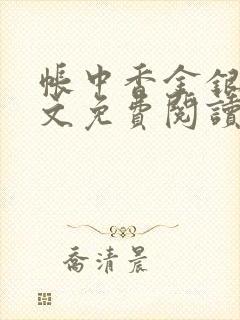 帳中香金銀
文免費閱讀
喬清晨